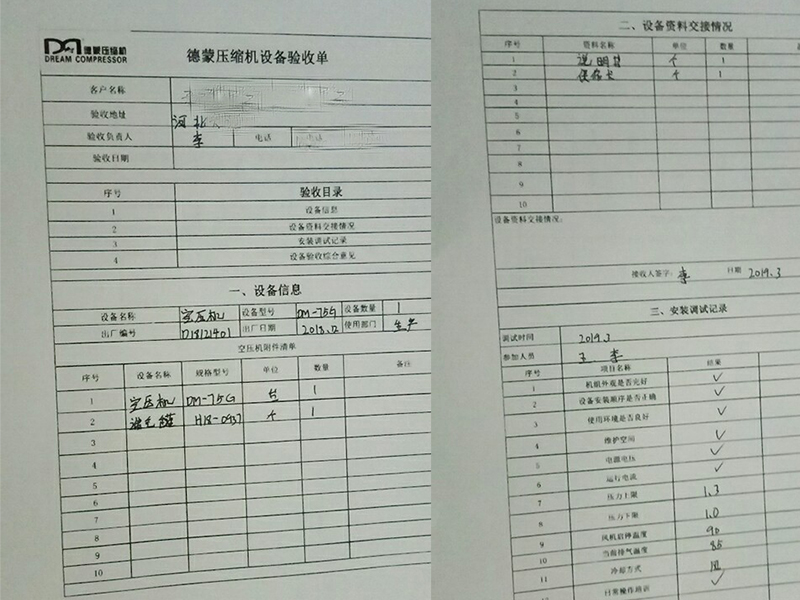 德蒙压缩机
DREAM COMPRESSOR
德蒙压缩机设备验收单
客户名称
验收地址 河北
验收负责人 李 电话
验收日期
序号 验收目录
1 设备信息
2 设备资料交接情况
3 安装调试记录
4 设备验收综合意见
一、设备信息
设备名称 空压机 设备型号 DM-75G 设备数量 1
出厂编号 D1812L401 出厂日期 2018.12 使用部门 生产
空压机附件清单
序号 设备名称 规格型号 单位 数量 备注
1 空压机 DM-75G 台 1
2 储气罐 个 1
3
4
5
6
7
8
9
10
二、设备资料交接情况
序号 资料名称 单位 数量
1 说明书 个 1
2 保修卡 个 1
3
4
5
6
7
8
9
10
设备资料交接情况:
接收人签字: 李 日期 2019.3
三、安装调试记录
调试时间 2019.3
参加人员 王 李
序号 项目名称 结果
1 机组外观是否完好 ✓
2 设备安装顺序是否正确 ✓
3 使用环境是否良好 ✓
4 维护空间 ✓
5 电源电压 ✓
6 运行电流 ✓
7 压力上限 1.3
8 压力下限 1.0
9 风机启停温度 90
10 当前排气温度 85
11 冷却方式 风
日常操作培训 ✓